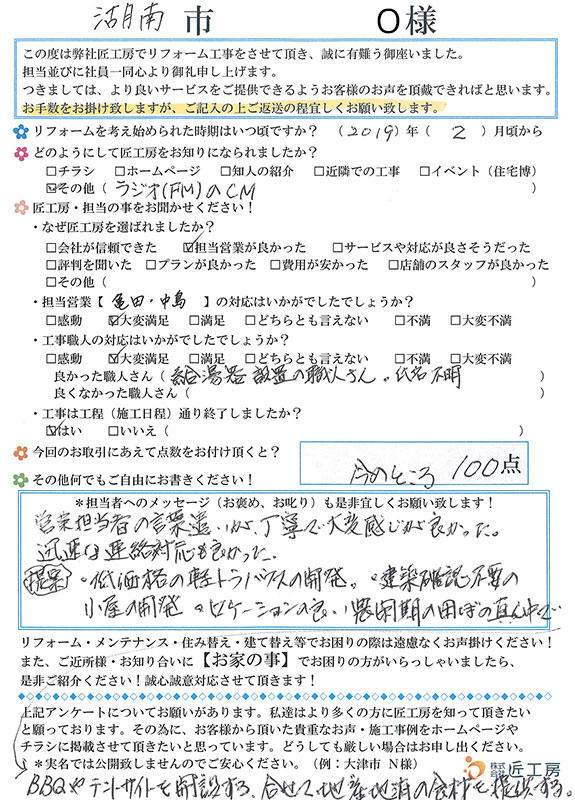 湖南 市 O様
この度は弊社匠工房でリフォーム工事をさせて頂き、誠に有難う御座いました。
担当並びに社員一同心より御礼申し上げます。
つきましては、より良いサービスをご提供できるようお客様のお声を頂戴できればと思います。
お手数をお掛け致しますが、ご記入の上ご返送の程宜しくお願い致します。
リフォームを考え始められた時期はいつ頃ですか？（2019）年（2）月頃から
どのようにして匠工房をお知りになられましたか？
□チラシ □ホームページ □知人の紹介 □近隣での工事 □イベント（住宅博）
☑その他（ラジオ(FM)のCM）
匠工房・担当の事をお聞かせください！
・なぜ匠工房を選ばれましたか？
□会社が信頼できた ☑担当営業が良かった □サービスや対応が良さそうだった
□評判を聞いた □プランが良かった □費用が安かった □店舗のスタッフが良かった
□その他（ ）
・担当営業【亀田・中島】の対応はいかがでしたでしょうか？
□感動 ☑大変満足 □満足 □どちらとも言えない □不満 □大変不満
・工事職人の対応はいかがでしたでしょうか？
□感動 ☑大変満足 □満足 □どちらとも言えない □不満 □大変不満
良かった職人さん（給湯器設置の職人さん。氏名不明）
良くなかった職人さん（ ）
・工事は工程（施工日程）通り終了しましたか？
☑はい □いいえ（ ）
今回のお取引にあえて点数をお付け頂くと？ 今のところ 100点
その他何でもご自由にお書きください！
＊担当者へのメッセージ（お褒め、お叱り）も是非宜しくお願い致します！
営業担当者の言葉遣いが、丁寧で大変感じが良かった。
迅速な連絡対応も良かった。
提案・低価格の軽トラハウスの開発。・建築確認不要の
小屋の開発・ロケーションの良い農閑期の田んぼの真ん中で
リフォーム・メンテナンス・住み替え・建て替え等でお困りの際は遠慮なくお声掛けください！
また、ご近所様・お知り合いに【お家の事】でお困りの方がいらっしゃいましたら、
是非ご紹介ください！誠心誠意対応させて頂きます！
上記アンケートについてお願いがあります。私達はより多くの方に匠工房を知って頂きたい
と願っております。その為に、お客様から頂いた貴重なお声・施工事例をホームページや
チラシに掲載させて頂きたいと思っています。どうしても厳しい場合はお申し出ください。
＊実名では公開致しませんのでご安心ください。（例：大津市 N様） 匠工房
BBQやテントサイトを開設する。合せて地産地消の食材を提供する。